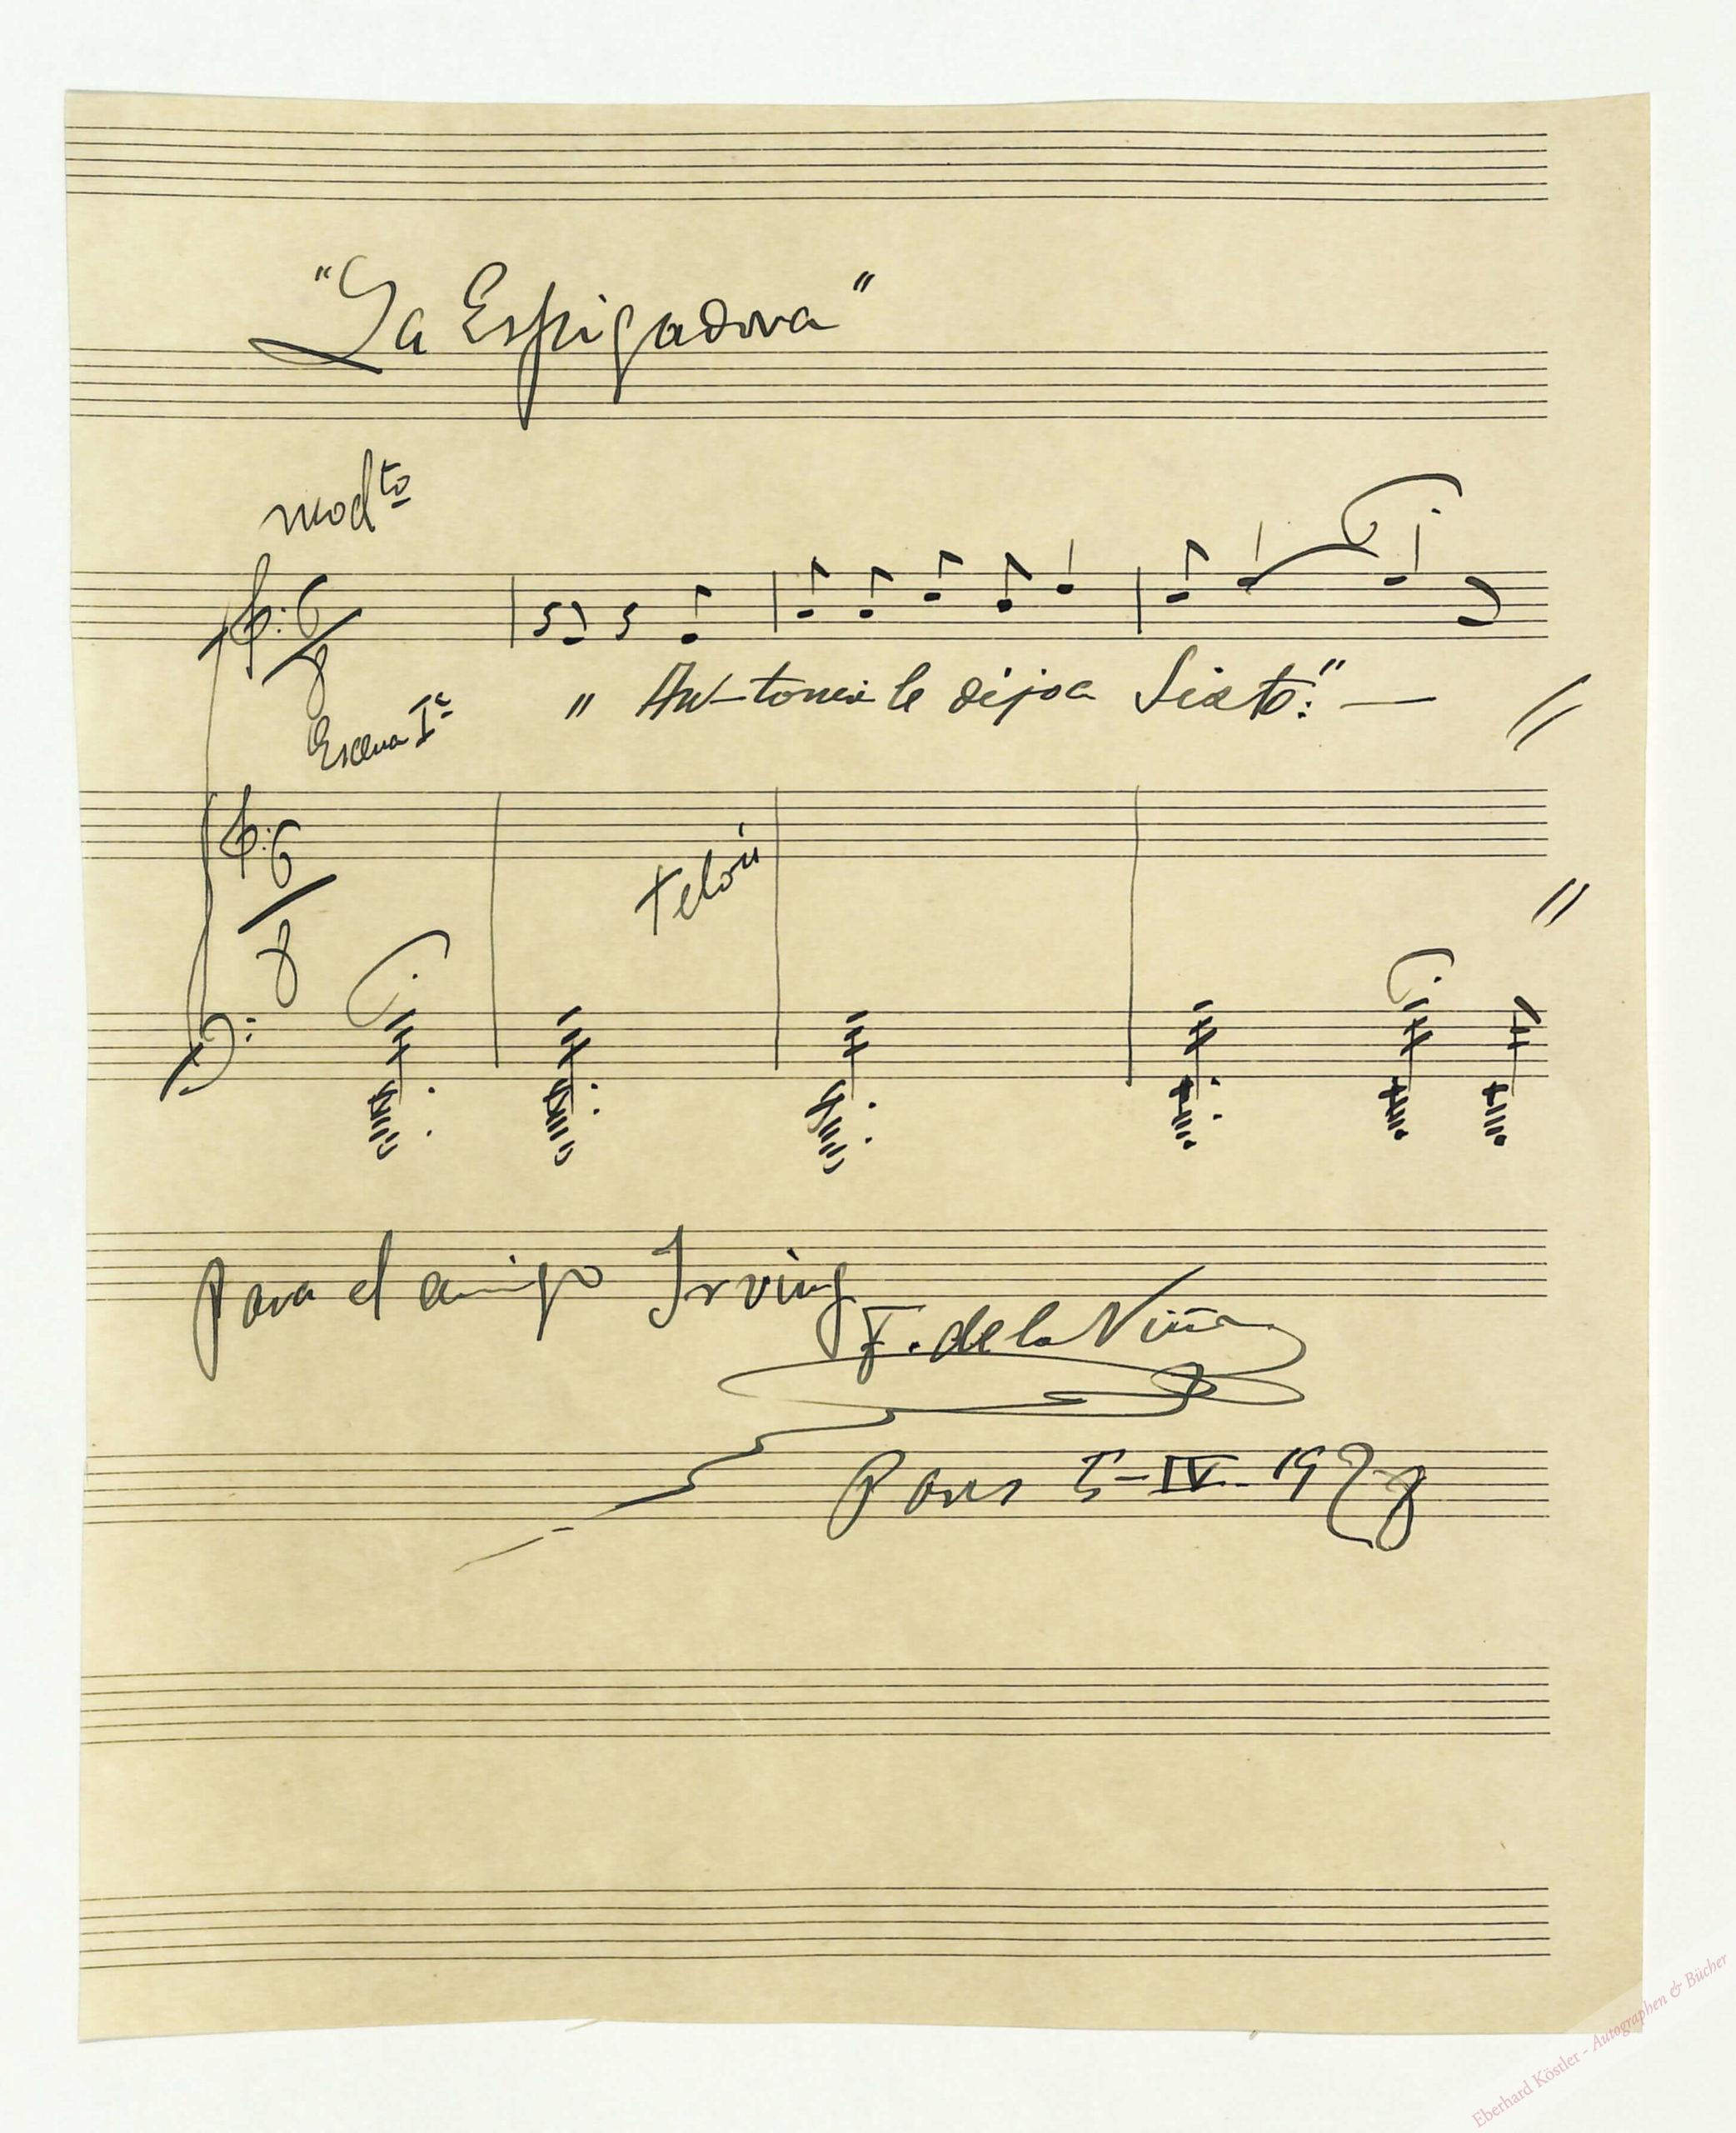 "La Espigadora"
modto
6
8
" An-tonia le dijo a Sixto:" —
Escena Iª
6
8
telón
Para el amigo Irving
F. de la Viña
Paris 5-IV-1928
Eberhard Köstler - Autographen & Bücher